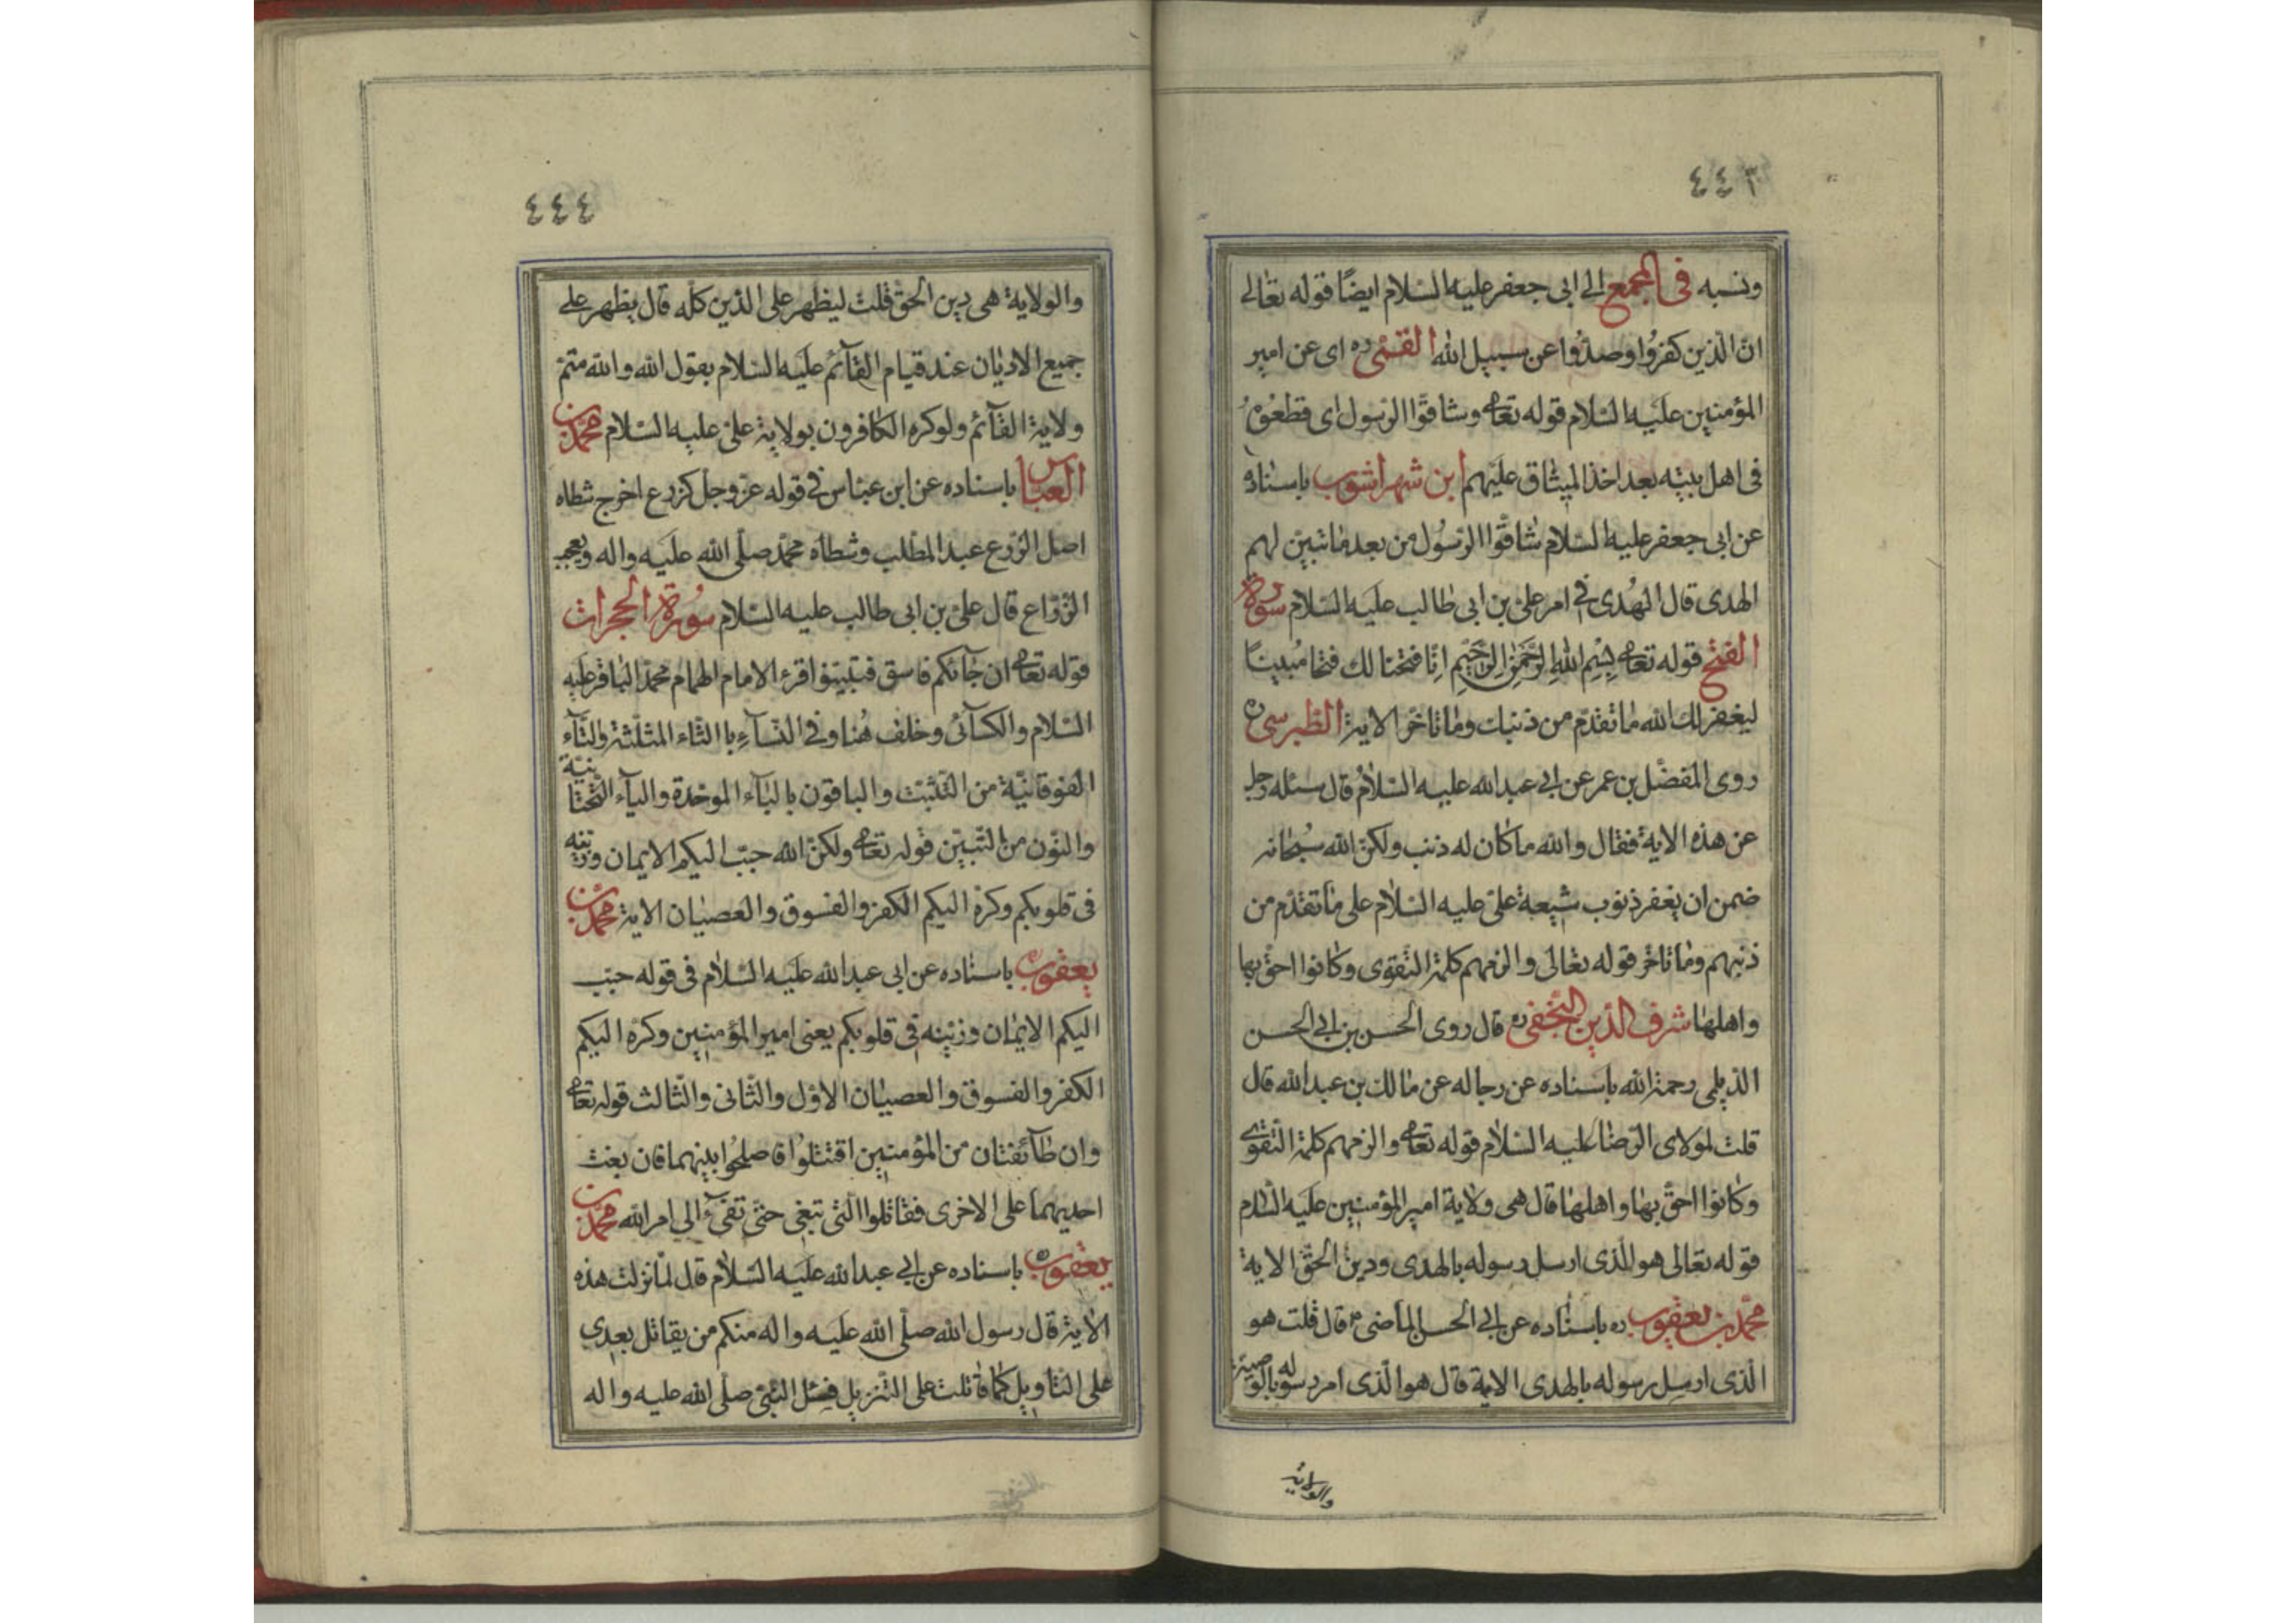 ٤٤٣
ونسبه فى المجمع الى ابى جعفر عليه السلام ايضًا قوله تعالى
انّ الّذين كفروا وصدّوا عن سبيل الله القمّى ره اى عن امير
المؤمنين عليه السلام قوله تعا وشاقّوا الرّسول اى قطعوه
فى اهل بيته بعد اخذ الميثاق عليهم ابن شهراشوب باسناده
عن ابى جعفر عليه السلام شاقّوا الرّسول من بعد ما تبيّن لهم
الهدى قال الهُدى فى امر علىّ بن ابى طالب عليه السلام سورة
الفتح قوله تعا بِسْمِ اللهِ الرَّحْمٰنِ الرَّحِيْمِ انّا فتحنا لك فتحا مُبينًا
ليغفر لك الله ما تقدّم من ذنبك وما تاخّر الاية الطبرسى ره
روى المفضّل بن عمر عن ابى عبدالله عليه السّلام قال سئله رجل
عن هذه الاية فقال والله ما كان له ذنب ولكنّ الله سُبحانه
ضمن ان يغفر ذنوب شيعة علىّ عليه السّلام على ما تقدّم من
ذنبهم وما تاخّر قوله تعالى والزمهم كلمة التّقوى وكانوا احقّ بها
واهلها شرف الدّين النّجفى ره قال روى الحسن بن ابى الحسن
الدّيلمى رحمة الله باسناده عن رجاله عن مالك بن عبدالله قال
قلت لمولاى الرّضا عليه السّلام قوله تعا والزمهم كلمة التّقوى
وكانوا احقّ بها واهلها قال هى ولاية امير المؤمنين عليه السّلام
قوله تعالى هو الّذى ارسل رسوله بالهدى ودين الحقّ الاية
محمّد بن يعقوب ره باسناده عن ابى الحسن الماضى ع قال قلت هو
الّذى ارسل رسوله بالهدى الاية قال هو الّذى امر رسوله بالوصيّة
والولاية
٤٤٤
والولاية هى دين الحقّ قلت ليظهر على الدّين كلّه قال يظهر على
جميع الاديان عند قيام القآئم عليه السلام بقول الله والله متمّ
ولاية القآئم ولو كره الكافرون بولاية علىّ عليه السّلام محمّد بن
العبّاس باسناده عن ابن عبّاس فى قوله عزّوجلّ كزرع اخرج شطاه
اصل الزّرع عبد المطّلب وشطاه محمّد صلّى الله عليه واله ويعجب
الزّرّاع قال علىّ بن ابى طالب عليه السّلام سُورة الحجرات
قوله تعا ان جآئكم فاسق فتبيّنوا قرء الامام الهمام محمّد الباقر عليه
السّلام والكسآئى وخلف هُنا وفى النّسآءِ با الثّاء المثلّثة والتّآء
الفوقانيّة من التّثبّت والباقون بالبآء الموحّدة واليآء التّحتانيّة
والنّون من التّبيّن قوله تعا ولكنّ الله حبّب اليكم الايمان وزيّنه
فى قلوبكم وكرّه اليكم الكفر والفسوق والعصيان الاية محمّد بن
يعقوب ره باسناده عن ابى عبدالله عليه السّلام فى قوله حبّب
اليكم الايمان وزيّنه فى قلوبكم يعنى امير المؤمنين وكرّه اليكم
الكفر والفسوق والعصيان الاوّل والثّانى والثّالث قوله تعا
وان طآئفتان من المؤمنين اقتتلوا فاصلحُوا بينهما فان بغت
احديهما على الاخرى فقاتلوا الّتى تبغى حتّى تفىٓء الى امر الله محمّد بن
يعقوب ره باسناده عن ابى عبدالله عليه السّلام قال لمّا نزلت هذه
الاية قال رسول الله صلّى الله عليه واله منكم من يقاتل بعدى
على التّاويل كما قاتلت على التّنزيل فسئل النّبىّ صلّى الله عليه واله